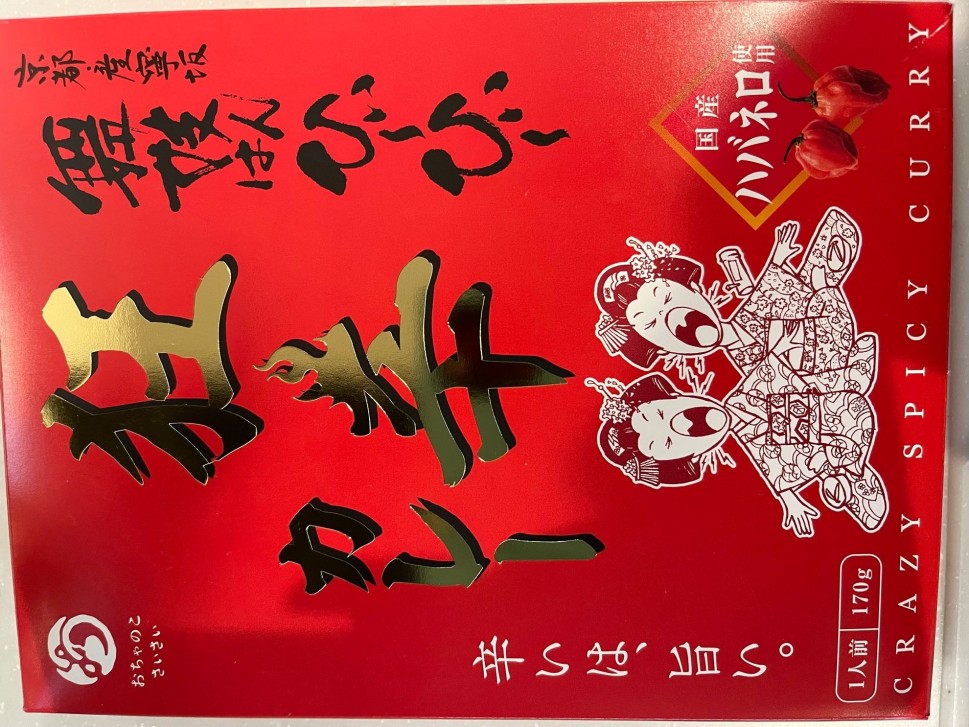 京都・産寧坂
舞妓はんひぃ〜ひぃ〜
狂辛
カレー
おちゃのこ
さいさい
辛いは、旨い。
国産
ハバネロ
使用
1人前 170g
CRAZY SPICY CURRY